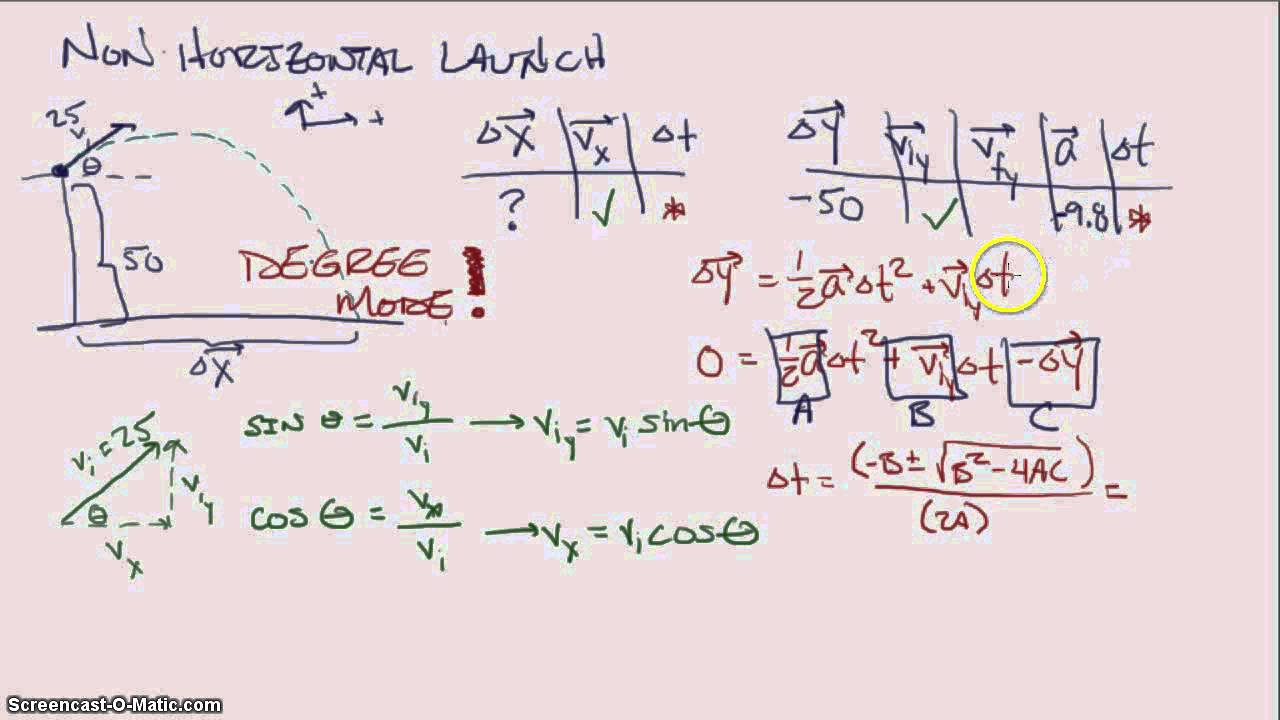 NON HORIZONTAL LAUNCH
25
v
θ
50
Δx
+
+
Δx | vₓ | Δt
? | ✓ | *
Δy | v_iy | v_fy | a | Δt
-50 | ✓ | | -9.8 | *
DEGREE
MODE!
Δy = 1/2 a Δt² + v_iy Δt
0 = 1/2 a Δt² + v_iy Δt - Δy
A B C
Δt = (-B ± √B² - 4AC) / (2A) =
vᵢ = 25
θ
v_iy
vₓ
SIN θ = v_iy / vᵢ → v_iy = vᵢ sin θ
COS θ = vₓ / vᵢ → vₓ = vᵢ cos θ
Screencast-O-Matic.com